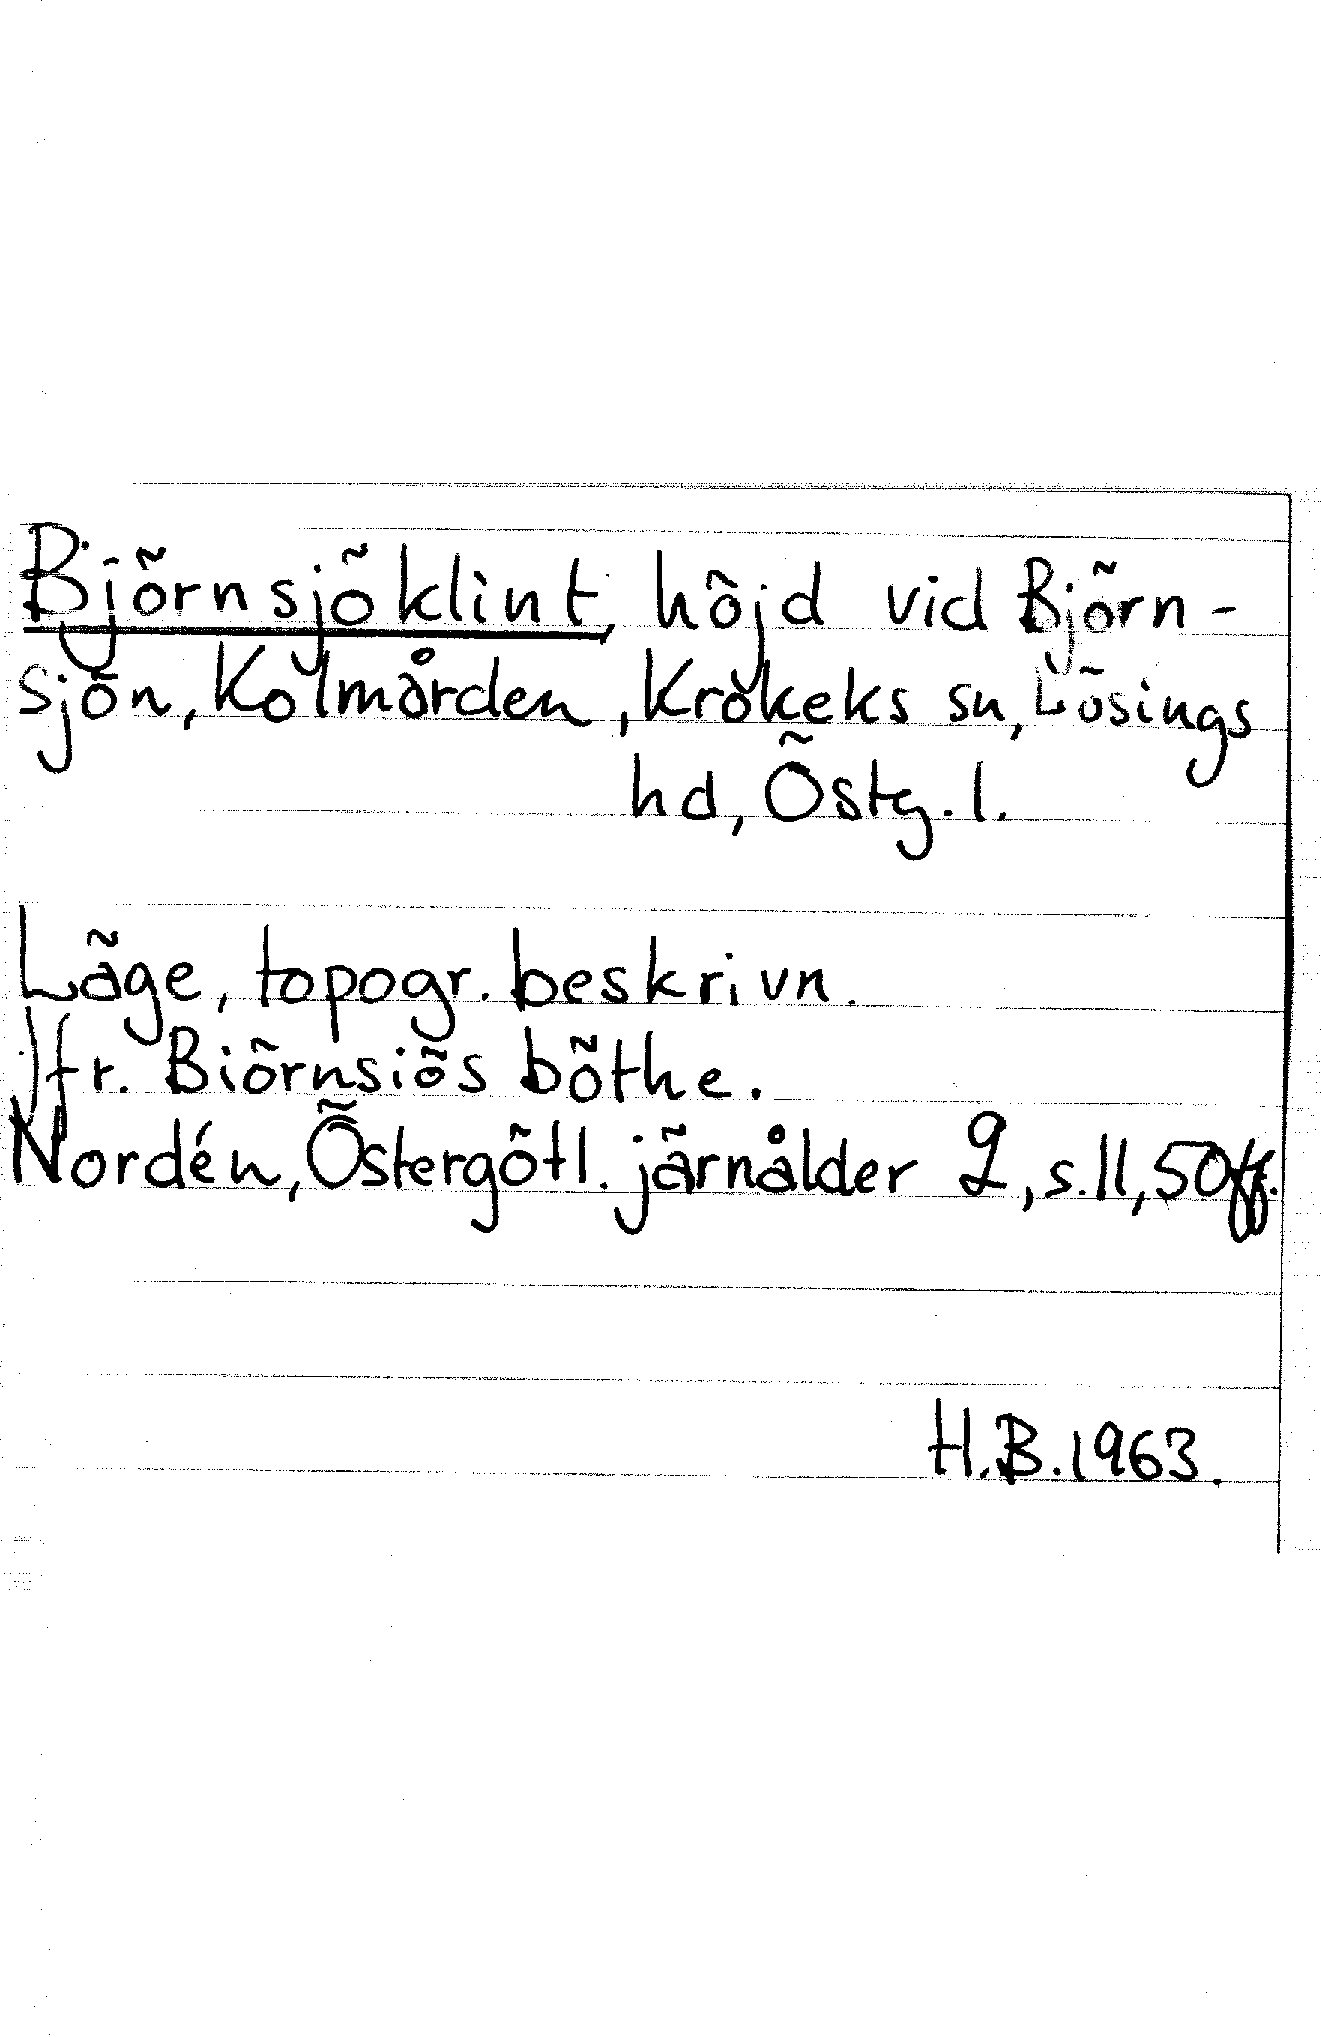 Björnsjöklint, höjd vid Björn-
sjön, Kolmården, Krokeks sn, Lösings
hd, Östg. l.
Läge, topogr. beskrivn.
Jfr. Biörnsiös böthe.
Nordén, Östergötl. järnålder 2, s. 11, 50ff.
H.B. 1963.